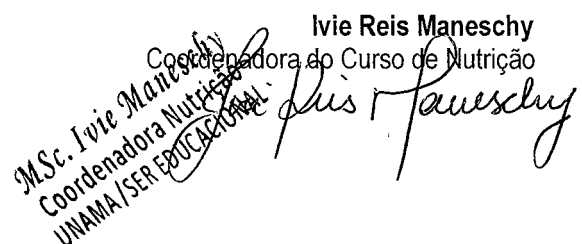 Ivie Reis Maneschy
Coordenadora do Curso de Nutrição
MSc. Ivie Maneschy
Coordenadora Nutrição
UNAMA/SER EDUCACIONAL
Reis Maneschy